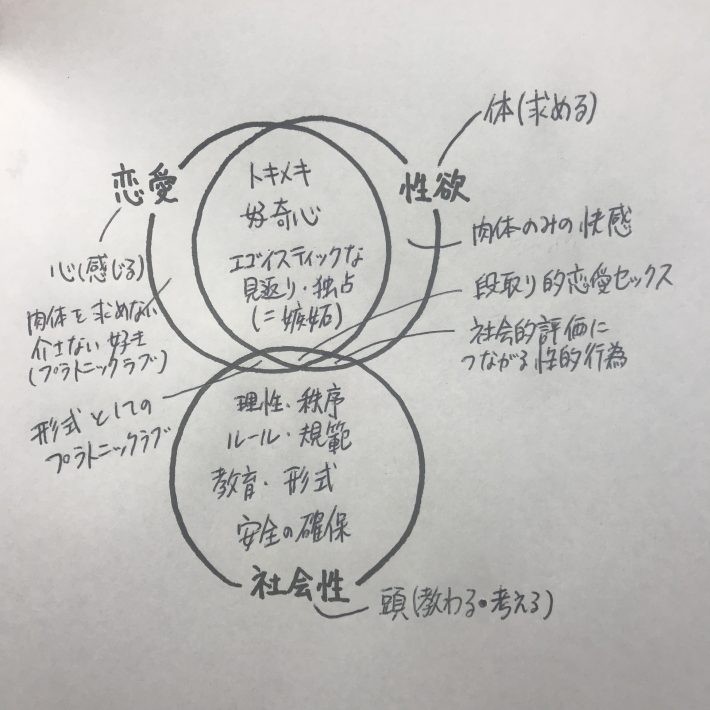 体(求める)
恋愛
トキメキ
性欲
好奇心
肉体のみの快感
エゴイスティックな
見返り・独占
(=嫉妬)
心(感じる)
段取り的恋愛セックス
肉体を求めない
介さない好き
(プラトニックラブ)
社会的評価に
つながる性的行為
形式としての
プラトニックラブ
理性・秩序
ルール・規範
教育・形式
安全の確保
社会性
頭(教わる・考える)